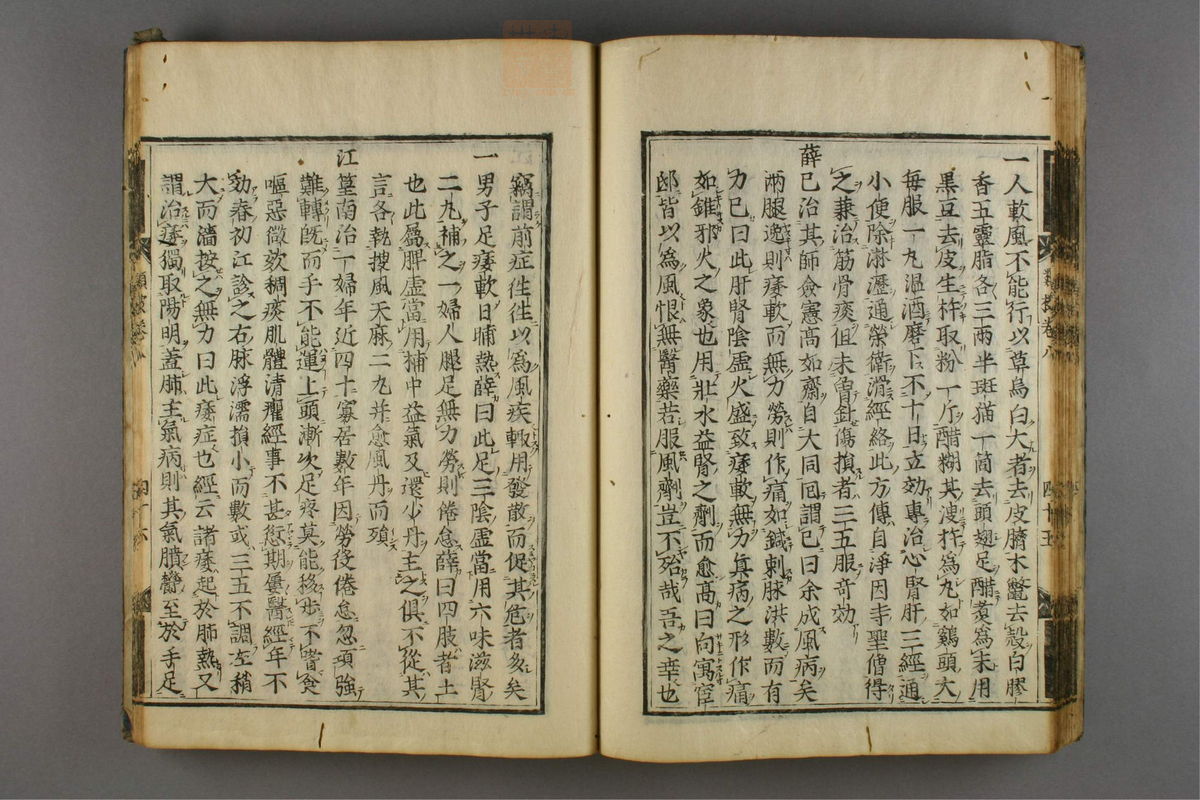 一人軟風不能行以草烏白大者去皮臍木鱉去殼白膠
香五靈脂各三兩半斑猫一箇去頭翅足醋煮為末用
黒豆去皮生杵取粉一斤醋糊其溲杵為丸如鷄頭大
毎服一丸温酒磨下不十日立効專治心腎肝三經通
小便除淋瀝通榮衛滑經絡此方傳自淨因寺聖僧得
之兼治筋骨痰但未曽針傷損者三五服竒効
薛己治其師僉憲高如齋自大同囘謂己曰余成風病矣
兩腿逸則痿軟而無力勞則作痛如鍼刺脉洪數而有
力己曰此肝腎陰虛火盛致痿軟無力真病之形作痛
如錐邪火之象也用壯水益腎之劑而愈高曰向寓宦
邸皆以為風恨無醫藥若服風劑豈不殆哉吾之幸也
竊謂前症徃徃以為風疾輙用發散而促其危者多矣
一男子足痿軟日晡熱薛曰此足三陰虛當用六味滋腎
二丸補之一婦人腿足無力勞則倦怠薛曰四肢者土
也此為脾虛當用補中益氣及還少丹主之俱不從其
言各執搜風天麻二丸并愈風丹而殞
江篁南治一婦年近四十寡居數年因勞役倦怠忽項強
難轉既而手不能運上頭漸次足疼莫能移歩不嘗食
嘔惡微欬稠痰肌體清癯經事不甚愆期屢醫經年不
効春初江診之右脉浮濡損小而數或三五不調左稍
大而濇按之無力曰此痿症也經云諸痿起於肺熱又
謂治痿獨取陽明蓋肺主氣病則其氣膹鬱至於手足